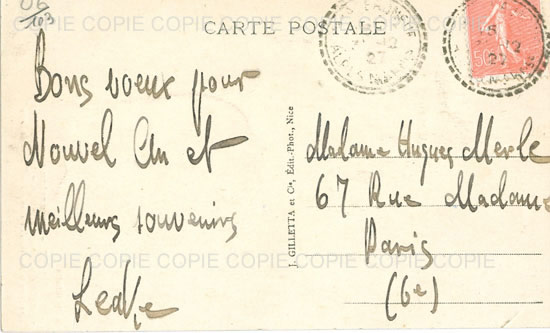 06
103
COPIE COPIE COPIE COPIE COPIE COPIE COPIE
CARTE POSTALE
Bons voeux pour
Nouvel An et
meilleurs souvenirs
J. GILLETTA et Cie, Édit.-Phot., Nice
Madame Hugues Merle
67 Rue Madame
Paris
(6e)
COPIE COPIE COPIE COPIE COPIE COPIE COPIE
50
12
27